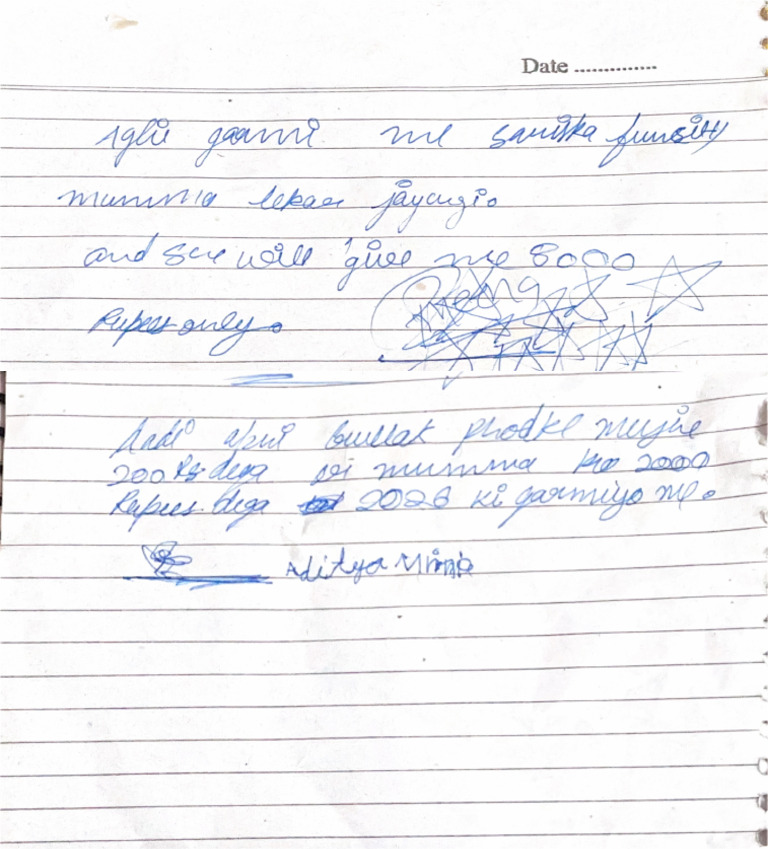 Date ..............
aglii garmi me funcity
mumma lekar jayegi.
and see will give me 8000
Rupees only.
Aadi apni gullak phodke mujhe
200 Rs. dega mumma ko 2000
Rupees dega 2026 ki garmiyo me.
Aditya